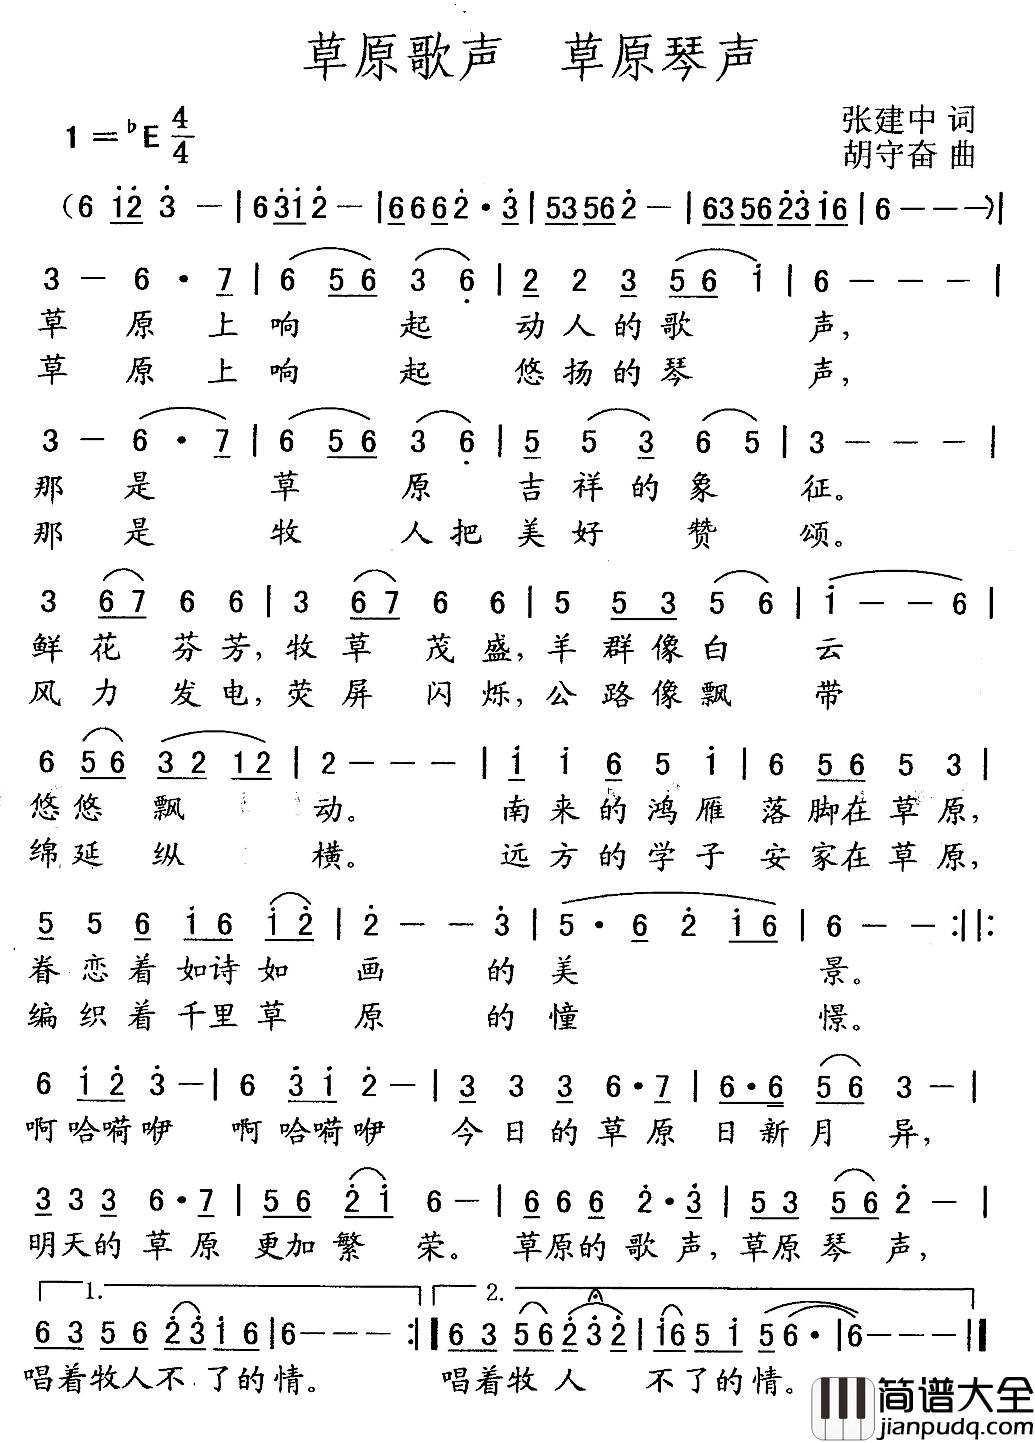 草原歌声　草原琴声
1=♭E 4/4
张建中 词
胡守奋 曲
(6 i2 3 — | 6 3i 2 — | 6 6 6 2 · 3 | 53 56 2 — | 63 56 23 i6 | 6 — — —) |
3 — 6 · 7 | 6 56 3 6 | 2 2 3 56 i | 6 — — — |
草 原 上 响 起 动人的歌 声,
草 原 上 响 起 悠扬的琴 声,
3 — 6 · 7 | 6 56 3 6 | 5 5 3 6 5 | 3 — — — |
那 是 草 原 吉祥的象 征。
那 是 牧 人把美好 赞 颂。
3 67 6 6 | 3 67 6 6 | 5 53 56 | i — — 6 |
鲜花芬芳,牧草茂盛,羊群像白 云
风力发电,荧屏闪烁,公路像飘 带
6 56 32 12 | 2 — — — | i i 6 5 i | 6 56 5 3 |
悠悠飘 动。 南来的鸿雁 落脚在草原,
绵延纵 横。 远方的学子 安家在草原,
5 5 6 i6 i2 | 2 — — 3 | 5 · 6 2 i6 | 6 — — :||:
眷恋着如诗如 画 的美 景。
编织着千里草 原 的憧 憬。
6 i2 3 — | 6 3i 2 — | 3 3 3 6 · 7 | 6 · 6 56 3 — |
啊哈嗬咿 啊哈嗬咿 今日的草原 日新月 异,
3 3 3 6 · 7 | 56 2i 6 — | 6 6 6 2 · 3 | 53 56 2 — |
明天的草原 更加繁 荣。 草原的歌声,草原琴 声,
1. 2.
63 56 23 i6 | 6 — — — :|| 63 56 232 | i6 5i 56 · | 6 — — — ||
唱着牧人不了的情。 唱着牧人 不了的情。
简谱大全
jianpudq.com